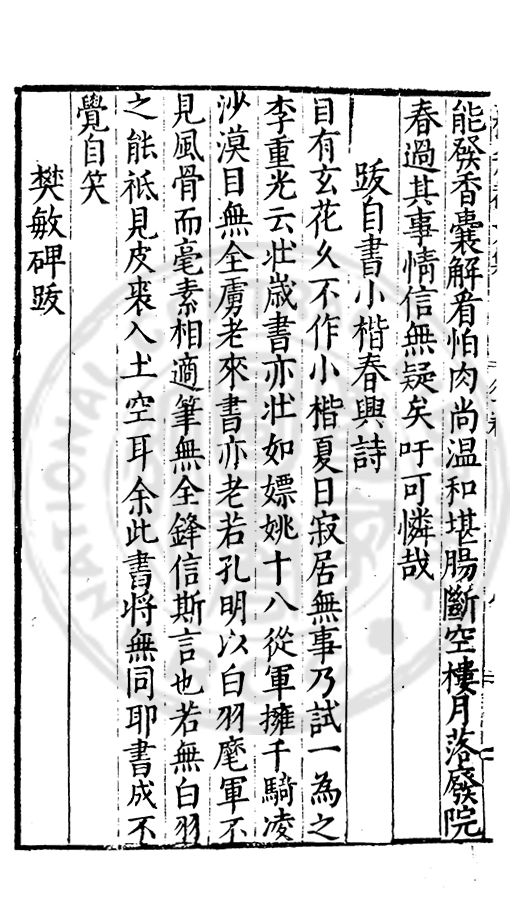 能發香囊解看怕肉尚温和堪腸斷空樓月落廢院
春過其事情信無疑矣吁可憐哉
跋自書小楷春興詩
目有玄花久不作小楷夏日寂居無事乃試一為之
李重光云壯歲書亦壯如嫖姚十八從軍擁千騎凌
沙漠目無全虜老來書亦老若孔明以白羽麾軍不
見風骨而毫素相適筆無全鋒信斯言也若無白羽
之能祗見皮裘入土空耳余此書將無同耶書成不
覺自笑
樊敏碑跋